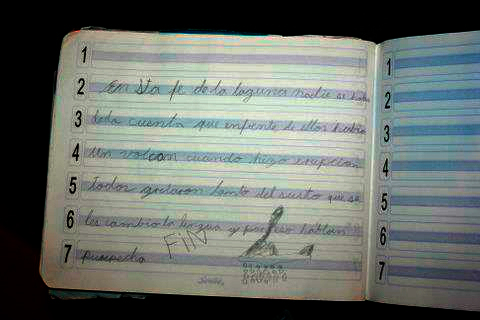 1
2 En Sta fe de la laguna nadie se habia
3 dada cuenta que enfrente de ellos habia
4 Un volcan cuando hizo erupcion
5 Todos gritaron tanto del susto que se
6 les cambio la lengua y por eso hablan
7 purepecha FIN
1
2
3
4
5
6
7